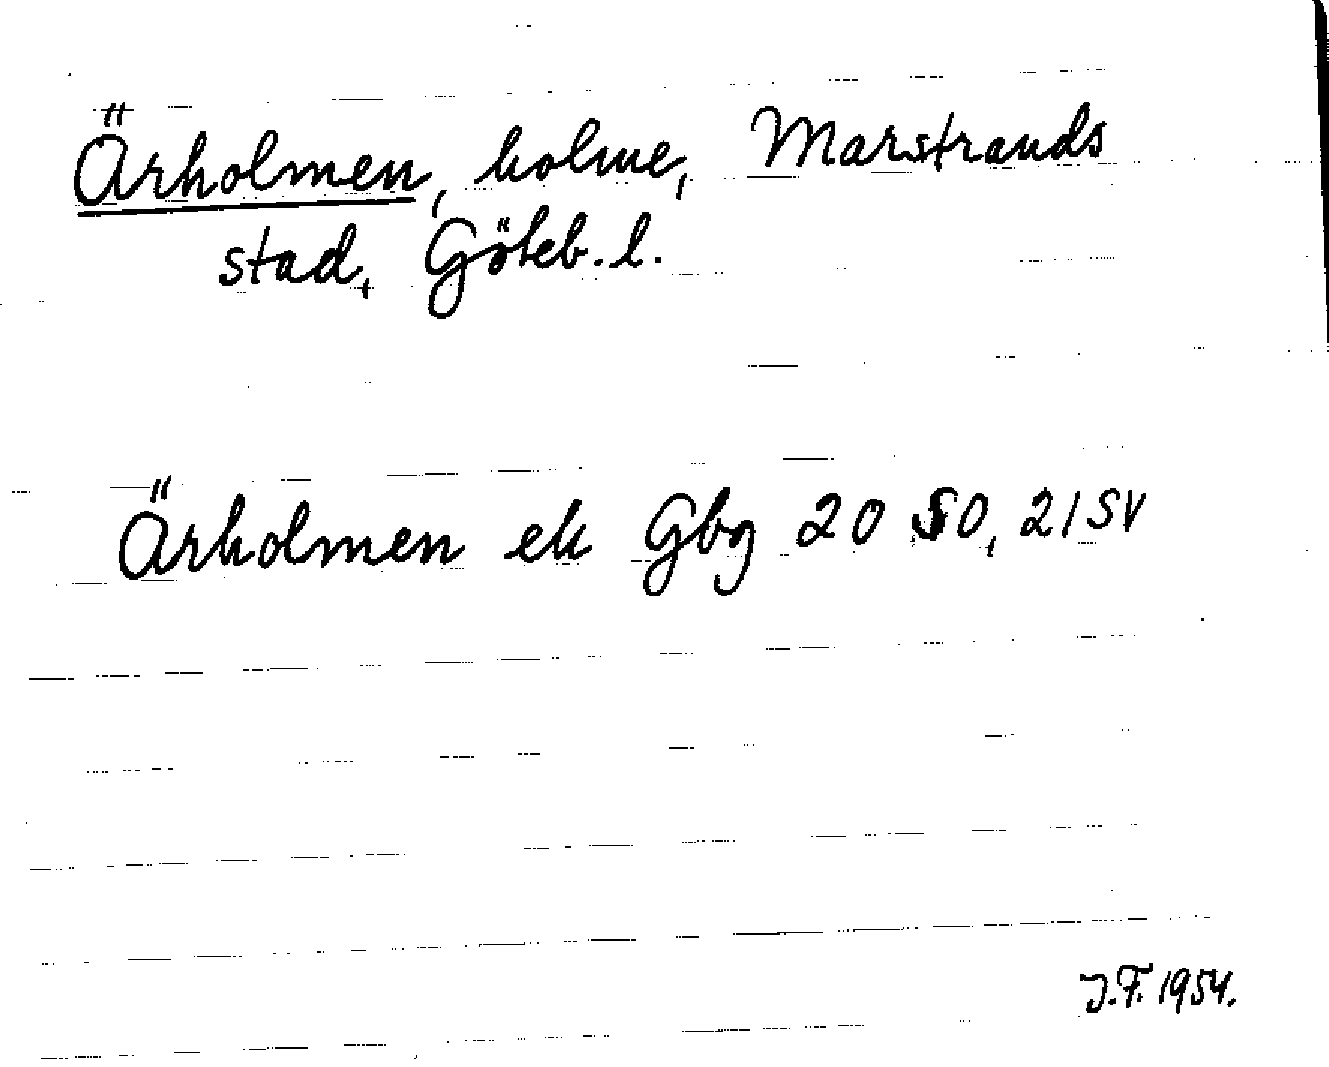 Ärholmen, holme, Marstrands
stad, Göteb. l.
Ärholmen ek Gbg 20 SO, 21 SV
J.F. 1954.